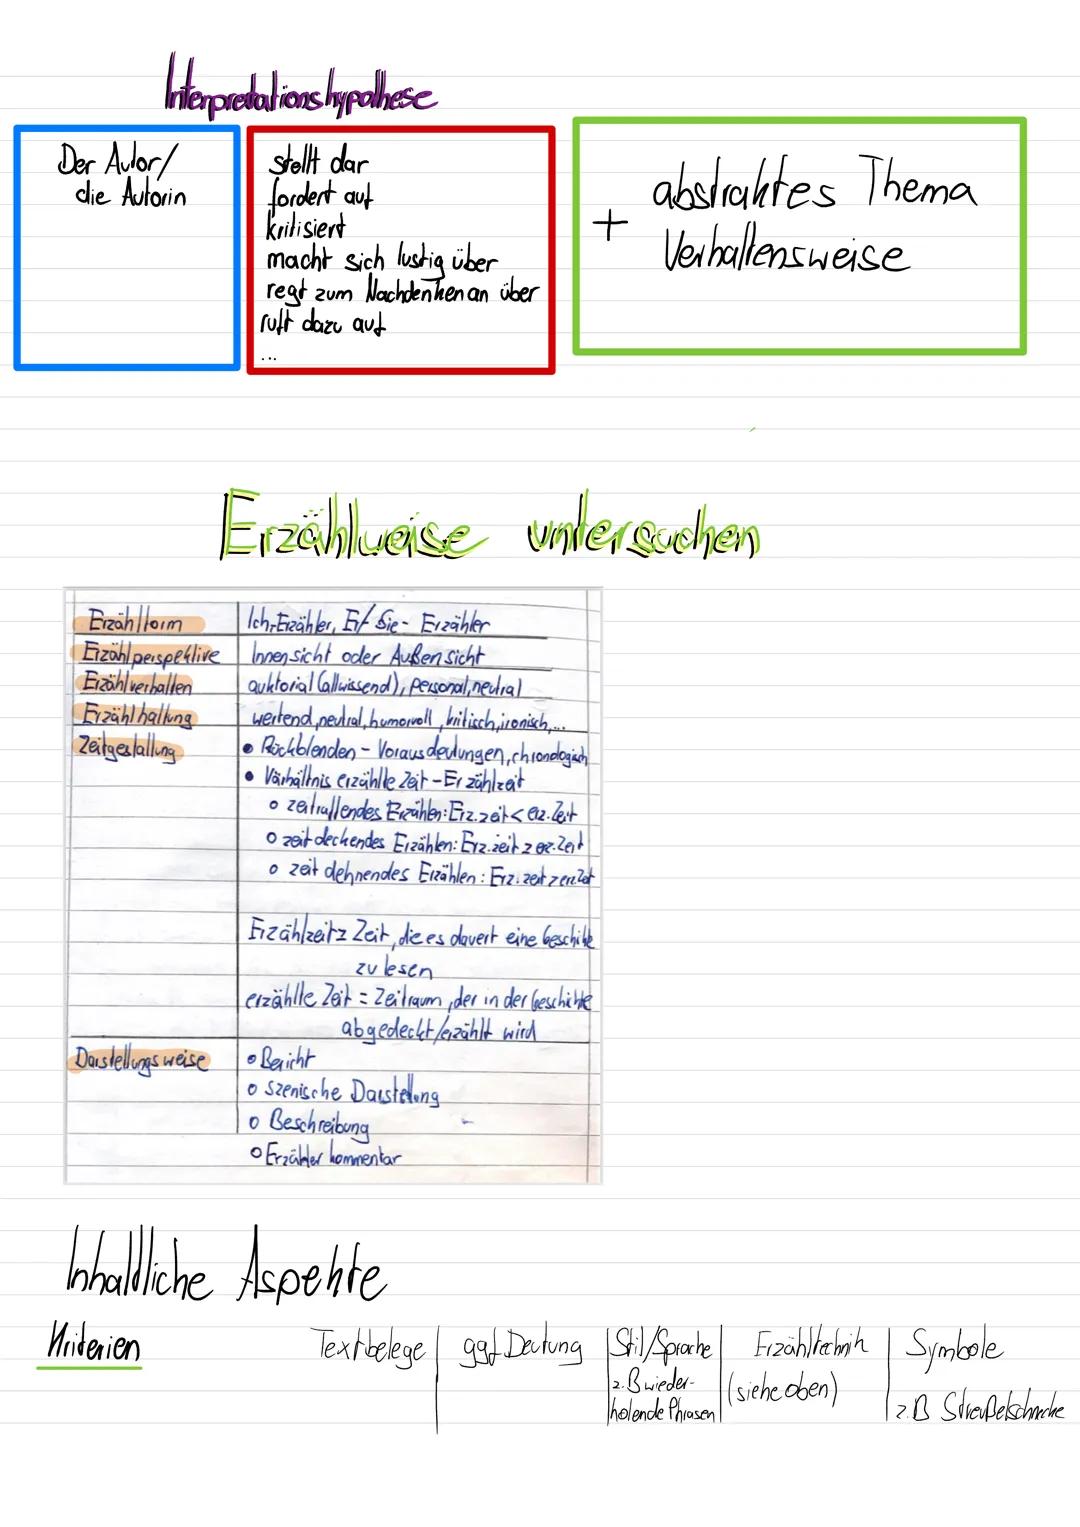 Interpretationshypothese
Der Autor/
die Autorin
stellt dar
fordert auf
kritisiert
macht sich lustig über
regt zum Nachdenken an über
ruft dazu auf
...
+ abstraktes Thema
Verhaltensweise
Erzählweise untersuchen
Erzählform Ich-Erzähler, Er/Sie- Erzähler
Erzählperspektive Innensicht oder Außensicht
Erzählverhalten auktorial (allwissend), personal, neutral
Erzählhaltung wertend, neutral, humorvoll, kritisch, ironisch,...
Zeitgestaltung • Rückblenden - Vorausdeutungen, chronologisch
• Verhältnis erzählte Zeit - Erzählzeit
o zeitraffendes Erzählen: Erz.zeit < erz. Zeit
o zeitdeckendes Erzählen: Erz.zeit = erz. Zeit
o zeitdehnendes Erzählen: Erz.zeit > erz. Zeit
Erzählzeit = Zeit, die es dauert eine Geschichte
zu lesen
erzählte Zeit = Zeitraum, der in der Geschichte
abgedeckt/erzählt wird
Darstellungsweise o Bericht
o Szenische Darstellung
o Beschreibung
o Erzählerkommentar
Inhaltliche Aspekte
Kriterien Textbelege ggf. Deutung Stil/Sprache Erzähltechnik Symbole
z.B wieder- (siehe oben)
holende Phrasen z.B Streußelschnecke